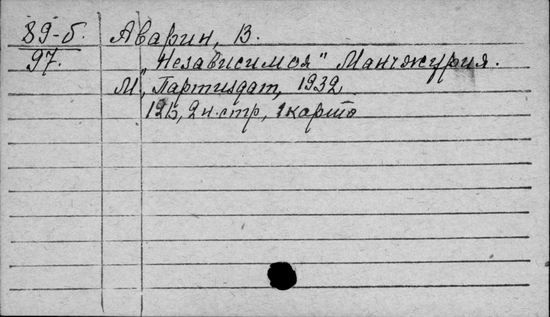 89-б. Аварин, В.
97. „Независимая" Манчжурия.
М., Партиздат, 1932
125, 2 н. стр, 1 карта